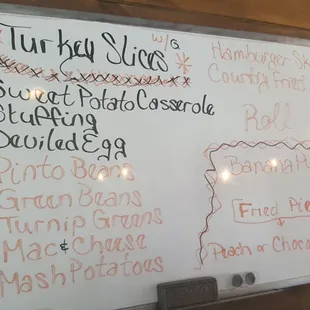 Turkey Slices w/G
Sweet Potato Casserole
Stuffing
Deviled Egg
Pinto Beans
Green Beans
Turnip Greens
Mac & Cheese
Mash Potatoes
Hamburger St
Country Fried
Roll
Banana Pu
Fried Pie
Peach or Choco